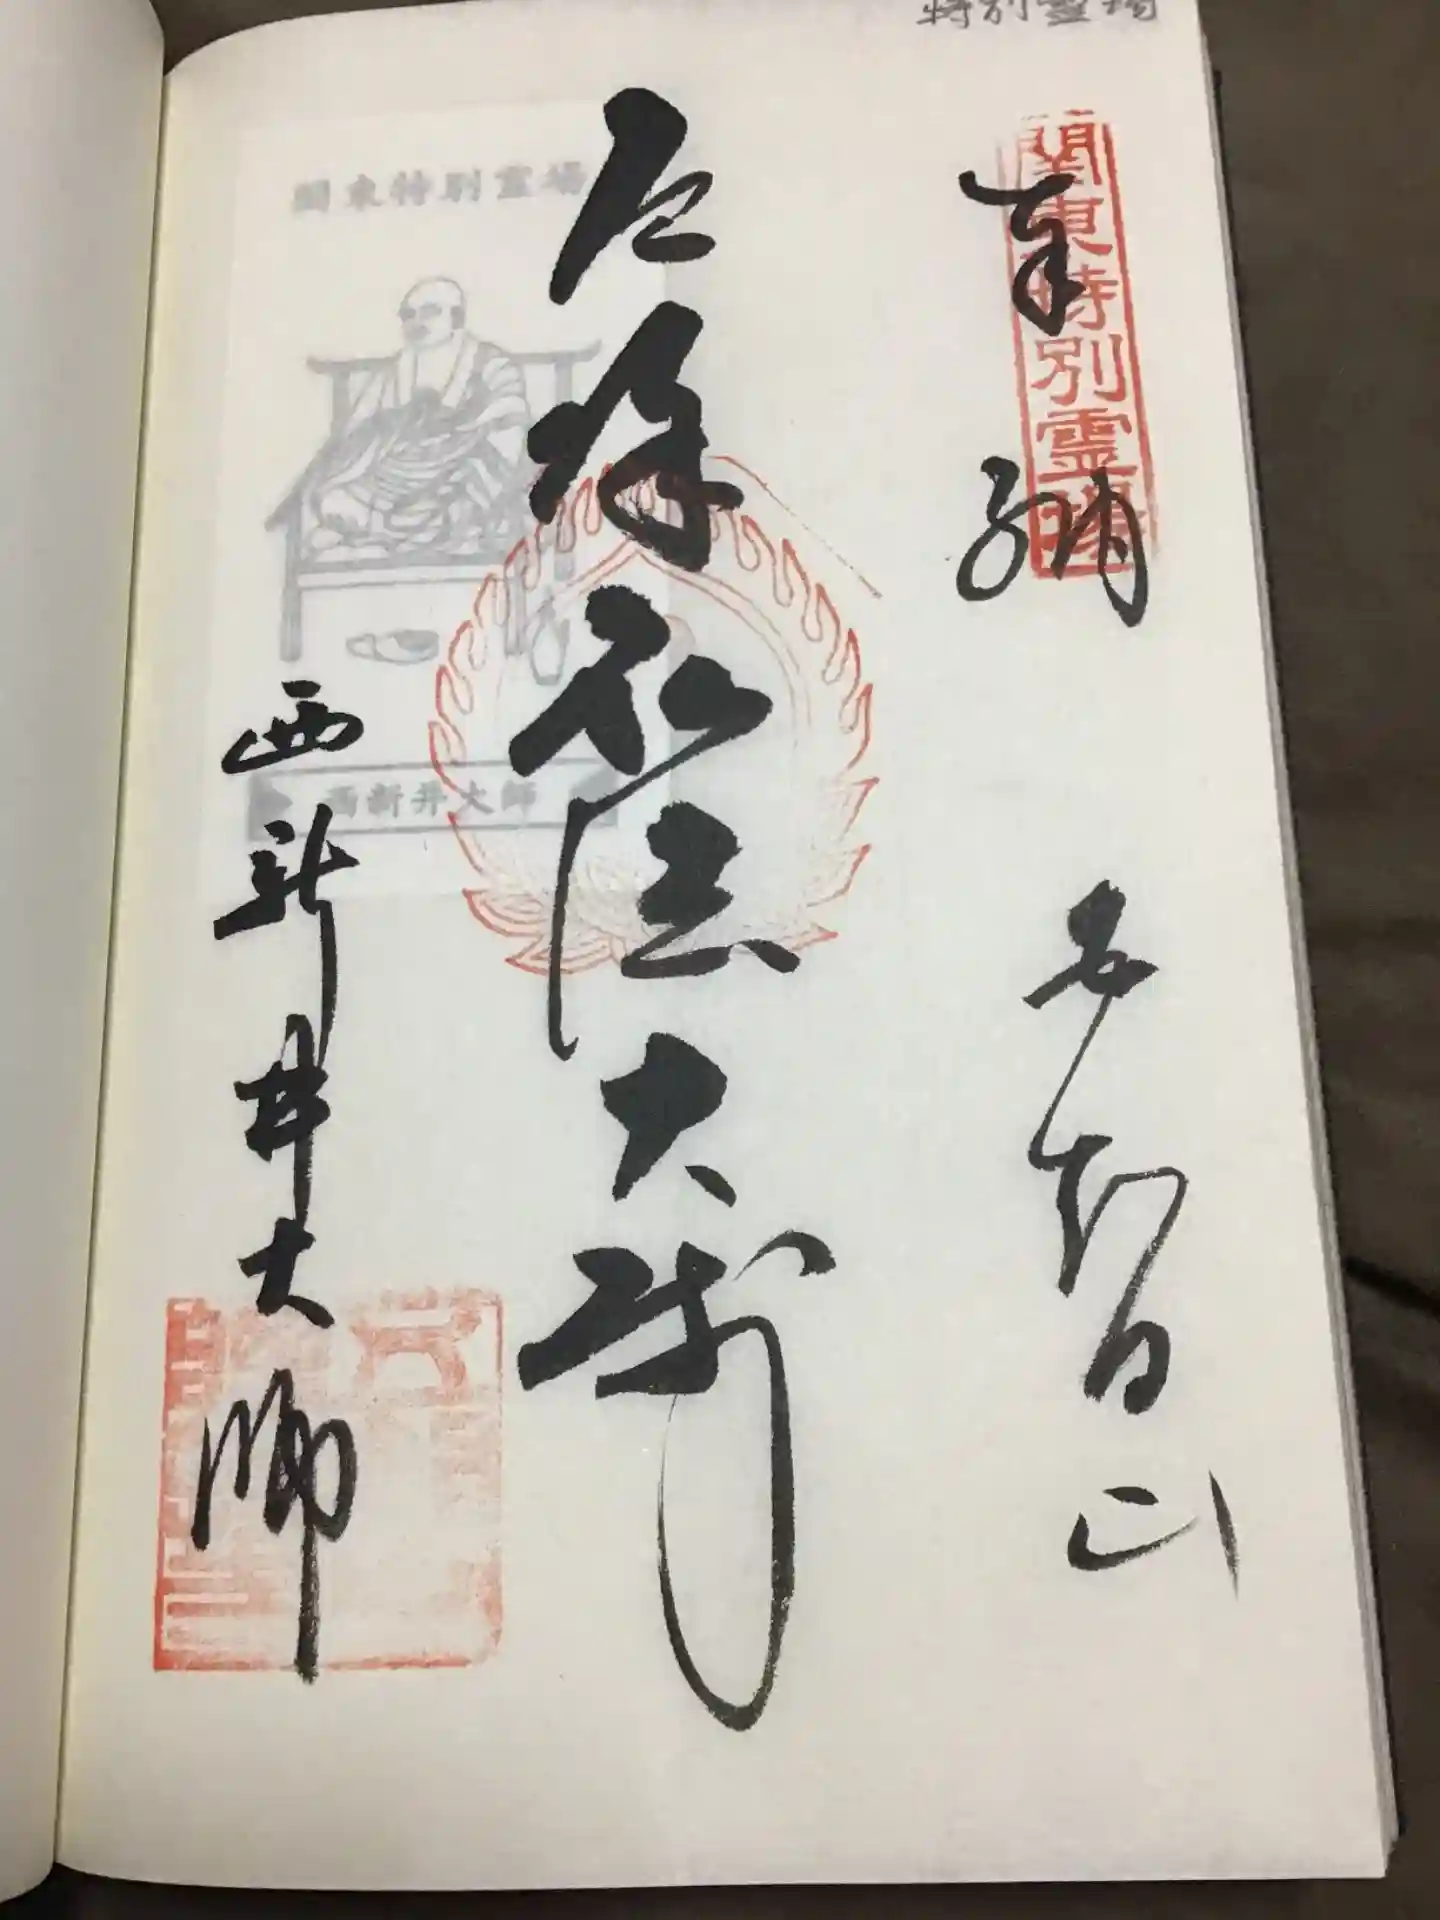 特別霊場
関東特別霊場
奉納 五智山
厄除弘法大師
西新井大師
関東特別霊場
西新井大師